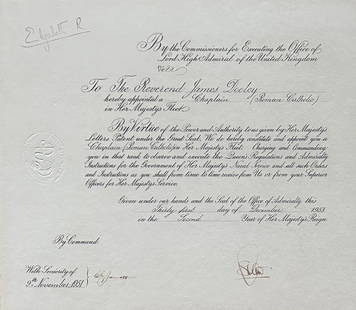 Elizabeth R
By the Commissioners for Executing the Office of
Lord High Admiral of the United Kingdom
&c &c &c
To The Reverend James Dooley
hereby appointed a Chaplain (Roman Catholic)
in Her Majesty's Fleet.
By Virtue of the Power and Authority to us given by Her Majesty's
Letters Patent under the Great Seal, We do hereby constitute and appoint you a
Chaplain (Roman Catholic) in Her Majesty's Fleet. Charging and Commanding
you in that rank to observe and execute the Queen's Regulations and Admiralty
Instructions for the Government of Her Majesty's Naval Service and all such Orders
and Instructions as you shall from time to time receive from Us or from your Superior
Officers for Her Majesty's Service.
Given under our hands and the Seal of the Office of Admiralty this
Thirty first day of December 1953
in the Second Year of Her Majesty's Reign
By Command
With Seniority of
9th November, 1951.